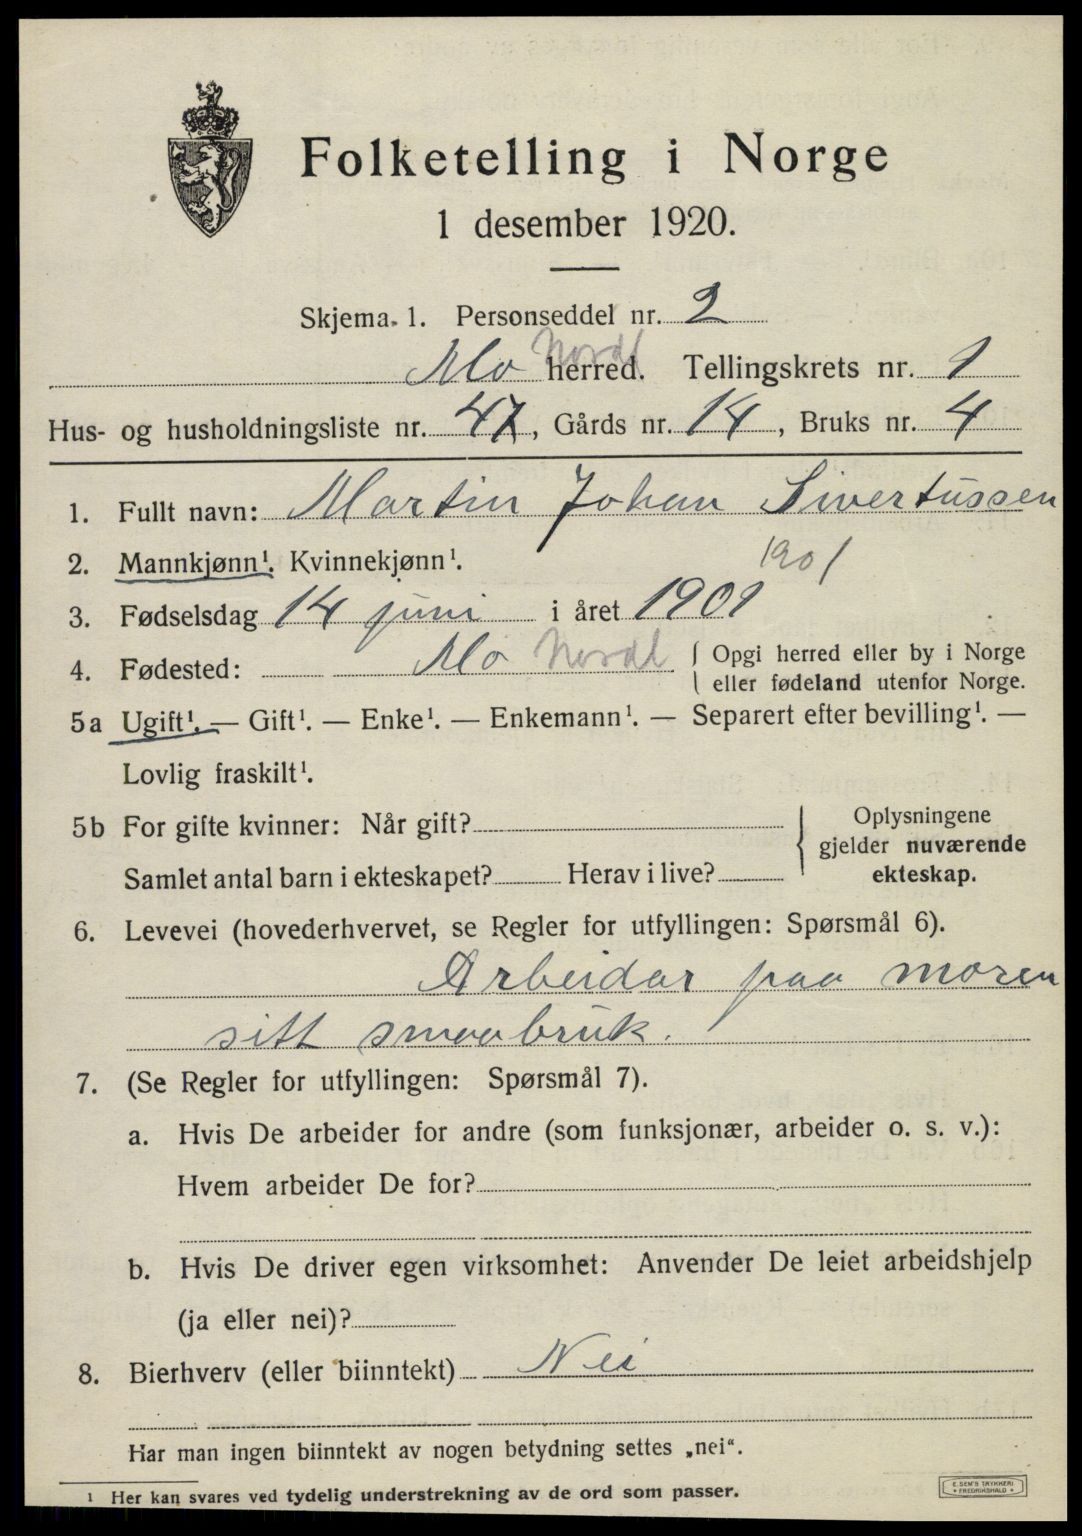 Folketelling i Norge
1 desember 1920.
Skjema 1. Personseddel nr. 2
Mo Nordl herred. Tellingskrets nr. 1
Hus- og husholdningsliste nr. 47, Gårds nr. 14, Bruks nr. 4
1. Fullt navn: Martin Johan Sivertussen
2. Mannkjønn¹. Kvinnekjønn¹.
1901
3. Fødselsdag 14 juni i året 1901
4. Fødested: Mo Nordl { Opgi herred eller by i Norge
eller fødeland utenfor Norge.
5a Ugift¹. — Gift¹. — Enke¹. — Enkemann¹. — Separert efter bevilling¹. —
Lovlig fraskilt¹.
5b For gifte kvinner: Når gift? { Oplysningene
gjelder nuværende
Samlet antal barn i ekteskapet? Herav i live? ekteskap.
6. Levevei (hovederhvervet, se Regler for utfyllingen: Spørsmål 6).
Arbeidar paa moren
sitt smaabruk.
7. (Se Regler for utfyllingen: Spørsmål 7).
a. Hvis De arbeider for andre (som funksjonær, arbeider o. s. v.):
Hvem arbeider De for?
b. Hvis De driver egen virksomhet: Anvender De leiet arbeidshjelp
(ja eller nei)?
8. Bierhverv (eller biinntekt) Nei
Har man ingen biinntekt av nogen betydning settes „nei“.
¹ Her kan svares ved tydelig understrekning av de ord som passer.
E. SEM'S TRYKKERI
FREDRIKSHALD